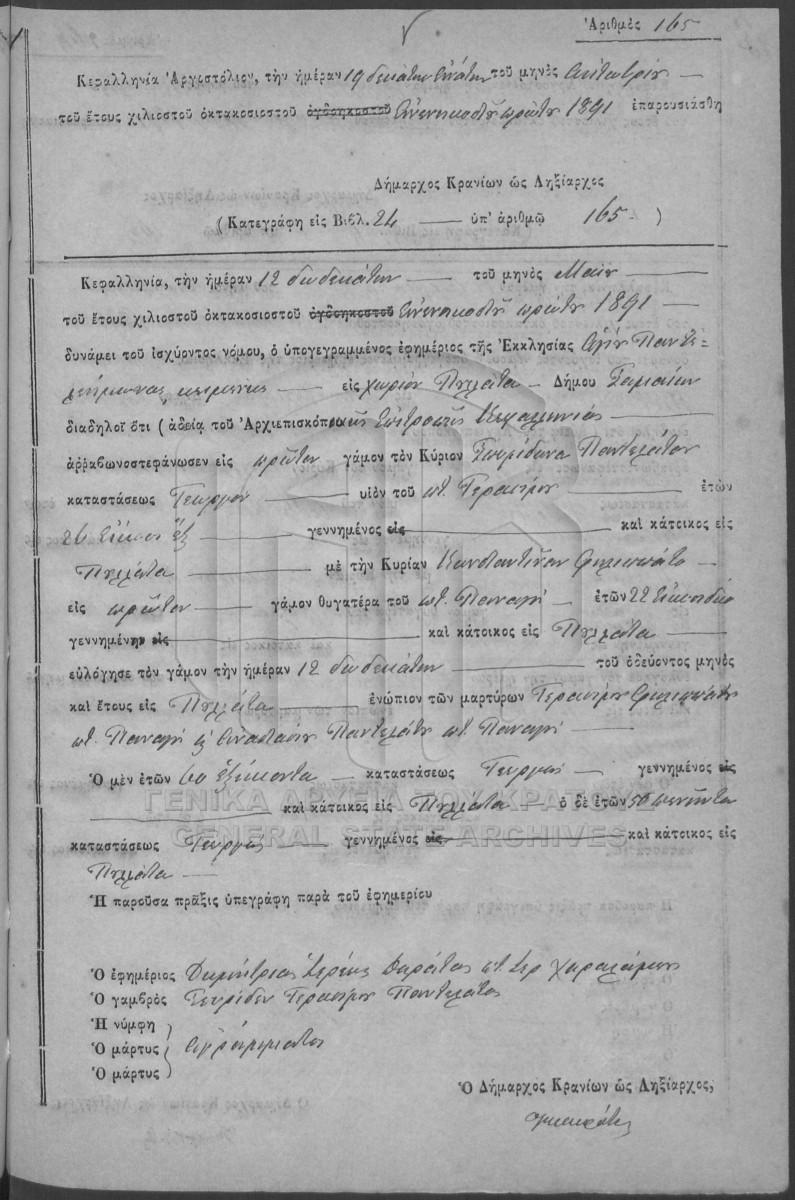 Ἀριθμὸς 165
Κεφαλληνία Ἀργοστόλιον, τὴν ἡμέραν 19 δεκάτην ἐνάτην τοῦ μηνὸς
τοῦ ἔτους χιλιοστοῦ ὀκτακοσιοστοῦ ὀγδοηκοστοῦ ἐνενηκοστοῦ πρώτου 1891 ἐπαρουσιάσθη
Δήμαρχος Κρανίων ὡς Ληξίαρχος
(Κατεγράφη εἰς Βιβλ. 24 — ὑπ' ἀριθμῷ 165)
Κεφαλληνία, τὴν ἡμέραν 12 δωδεκάτην — τοῦ μηνὸς Μαΐου
τοῦ ἔτους χιλιοστοῦ ὀκτακοσιοστοῦ ὀγδοηκοστοῦ ἐνενηκοστοῦ πρώτου 1891 —
δυνάμει τοῦ ἰσχύοντος νόμου, ὁ ὑπογεγραμμένος ἐφημέριος τῆς Ἐκκλησίας Ἁγίου Παντε-
λεήμωνος κειμένης — εἰς χωρίον Πυλλάτα — Δήμου Σαμαίων
διαδηλοῖ ὅτι (ἀδείᾳ τοῦ Ἀρχιεπισκόπικῆς Ἐπιτροπῆς Κεφαλληνίας —
ἀῤῥαβωνοστεφάνωσεν εἰς πρῶτον γάμον τὸν Κύριον Σπυρίδωνα Παντελάτον
καταστάσεως Γεωργοῦ — υἱὸν τοῦ ποτ. Γερασίμου — ἐτῶν
26 Εἴκοσι ἕξ — γεννημένος εἰς — καὶ κάτοικος εἰς
Πυλλάτα — μὲ τὴν Κυρίαν Κωνσταντῖναν Φιλιππάτο —
εἰς πρῶτον — γάμον θυγατέρα τοῦ ποτ. Παναγῆ — ἐτῶν 22 Εἰκοσιδύο
γεννημένην εἰς — καὶ κάτοικος εἰς Πυλλάτα —
εὐλόγησε τὸν γάμον τὴν ἡμέραν 12 δωδεκάτην — τοῦ ὁδεύοντος μηνὸς
καὶ ἔτους εἰς Πυλλάτα — ἐνώπιον τῶν μαρτύρων Γερασίμου Φιλιππάτου
ποτ. Παναγῆ καὶ Ἀναστασίου Παντελάτου ποτ. Παναγῆ —
Ὁ μὲν ἐτῶν 60 ἑξήκοντα — καταστάσεως Γεωργὸς — γεννημένος εἰς
— καὶ κάτοικος εἰς Πυλλάτα — ὁ δὲ ἐτῶν 50 πενῆντα
ΓΕΝΙΚΑ ΑΡΧΕΙΑ ΤΟΥ ΚΡΑΤΟΥΣ
GENERAL STATE ARCHIVES
καταστάσεως Γεωργὸς — γεννημένος εἰς — καὶ κάτοικος εἰς
Πυλλάτα —
Ἡ παροῦσα πρᾶξις ὑπεγράφη παρὰ τοῦ ἐφημερίου
Ὁ ἐφημέριος Δημήτριος Ἱερεὺς
Ὁ γαμβρὸς Σπυρίδων Γερασίμου Παντελάτος
Ἡ νύμφη
Ὁ μάρτυς } ἀγράμματοι
Ὁ μάρτυς
Ὁ Δήμαρχος Κρανίων ὡς Ληξίαρχος,